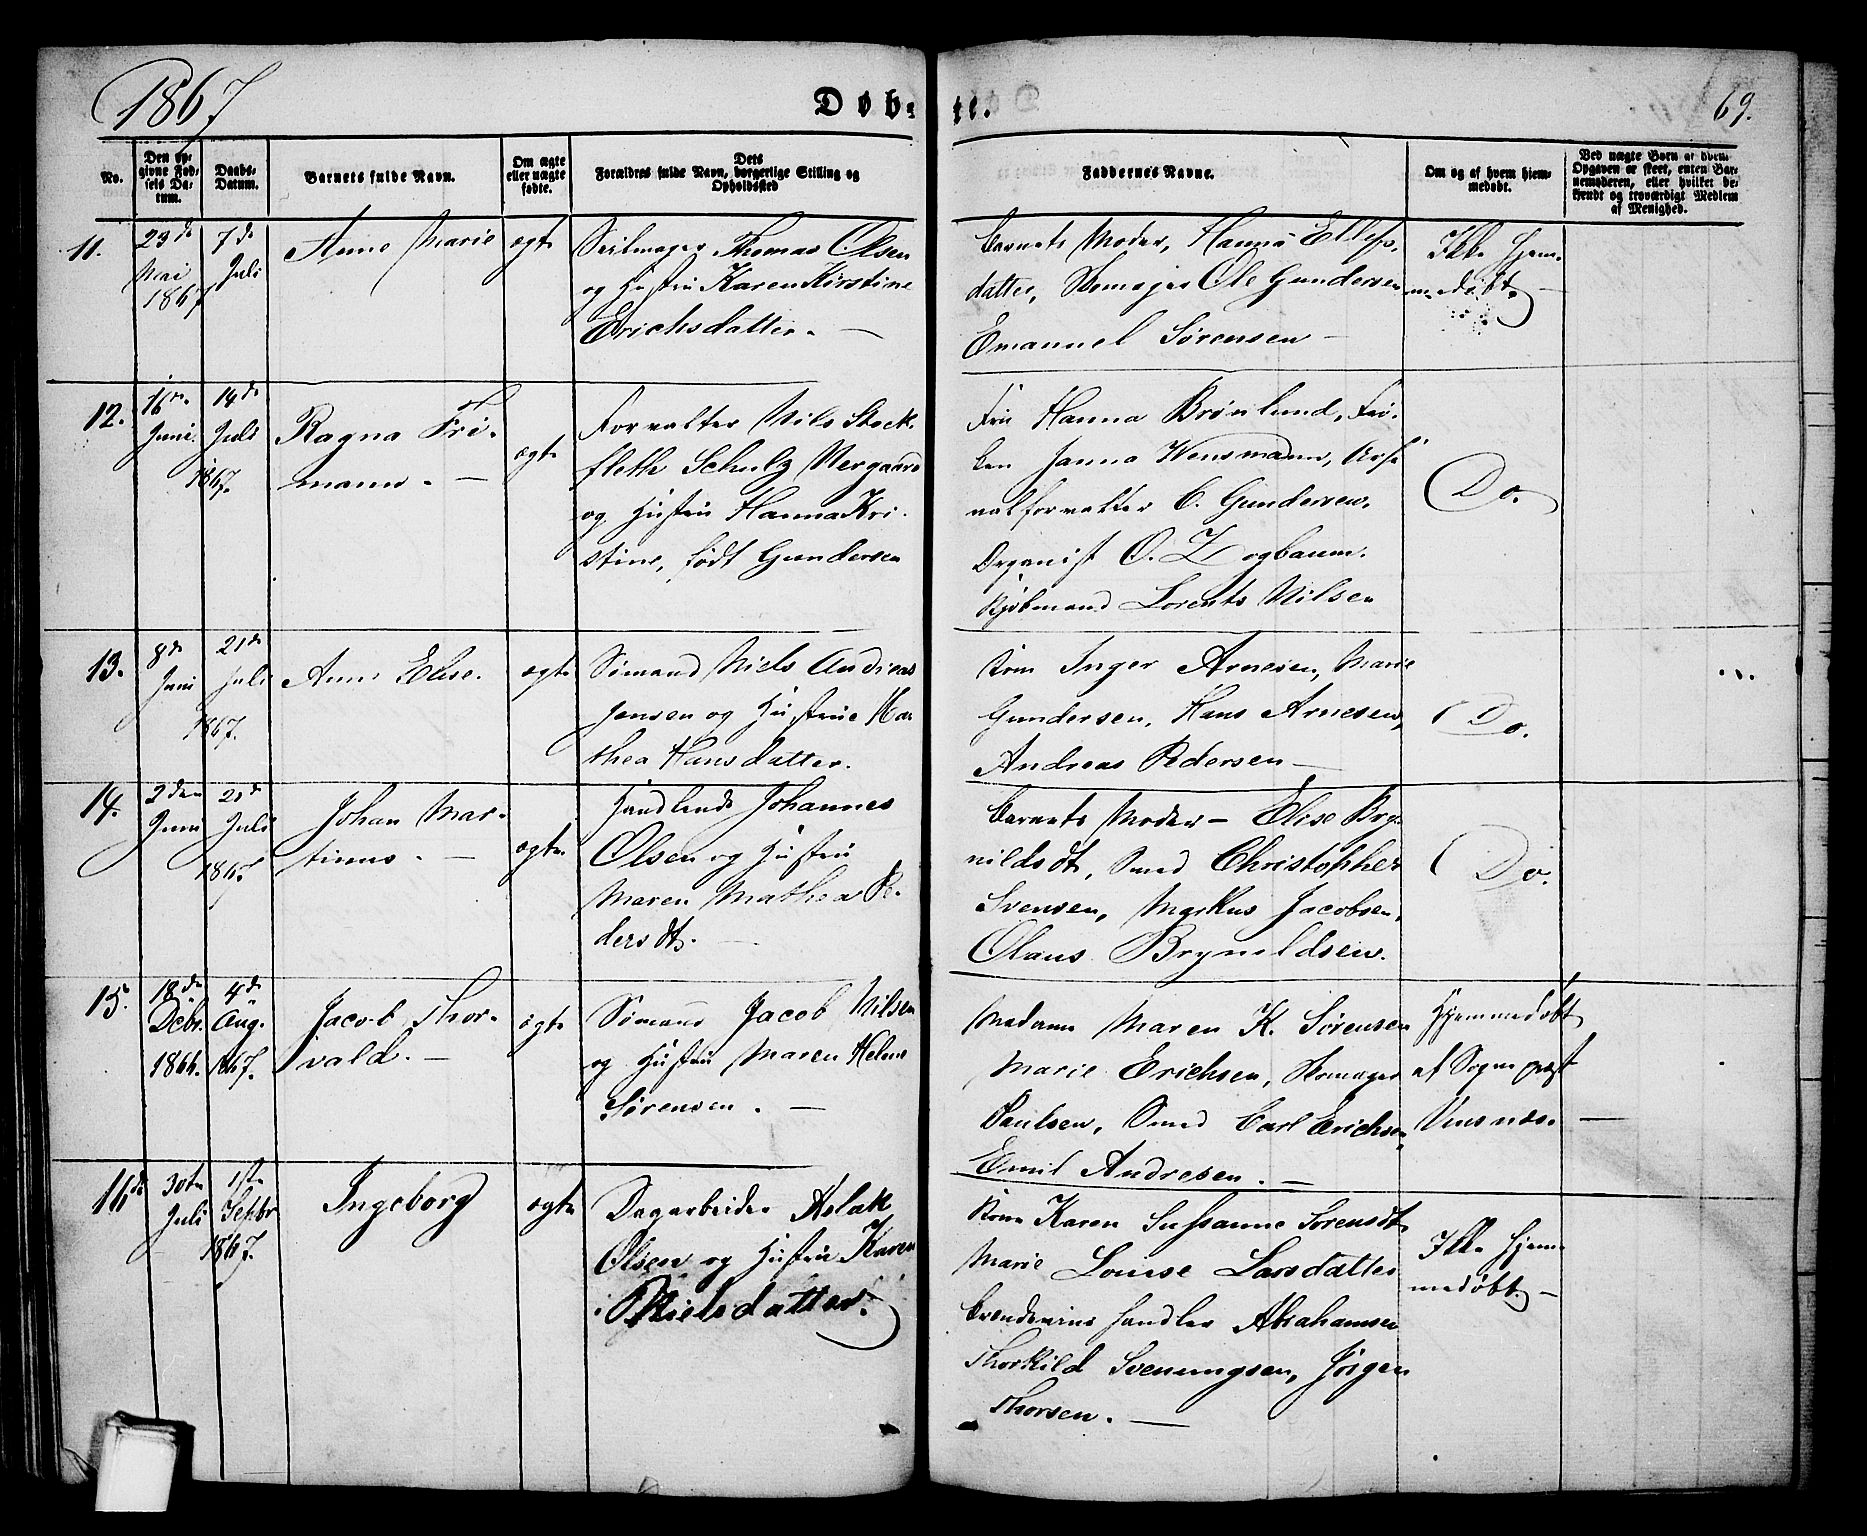 1867
Døb-
te.
69.
No.
Den op-
givne Fød-
sels Da-
tum.
Daabs-
Datum.
Barnets fulde Navn.
Om ægte
eller uægte
fødte.
Dets
Forældres fulde Navn, borgerlige Stilling og
Opholdssted
Faddernes Navne.
Om og af hvem hjem-
medøbt.
Ved uægte Børn af hvem
Opgaven er skeet, enten Bar-
nemoderen, eller hvilket be-
kjendt og troværdigt Medlem
af Menighed.
11.
23de
Mai
1867
7de
Juli
Anne Marie
ægte
Seilmager Thomas Olsen
og Hustru Karen Kirstine
Erichsdatter. —
Barnets Moder, Hanna Ellefs-
datter, Skomager Ole Gundersen
Emanuel Sørensen —
Ikke Hjem-
medøbt. —
12.
16de
Juni
14de
Juli
1867.
Ragna Fri-
mann. —
ægte
Forvalter Nils Stock-
fleth Schulz Nergaard
og Hustru Hanna Kri-
stine, født Gundersen
Fru Hanna Brønlund, Frø-
ken Janna Wensmann, Arse
nalforvalter C. Gundersen,
Organist O. Zogbaum.
Kjøbmand Lorents Nilsen
Do.
13.
8de
Juni
21de
Juli
1867.
Anne Elise.
ægte
Sømand Niels Andreas
Jensen og Hustrue Mar
thea Hansdatter.
Kone Inger Arnesen, Marie
Gundersen, Hans Arnesen,
Andreas Pedersen —
Do.
14.
2den
Juni
21de
Juli
1867
Johan Mar-
tinus. —
ægte
Handlende Johannes
Olsen og Hustru
Maren Mathea Pe-
dersdt. —
Barnets Moder — Elise Bry-
nildsdt, Smed Christopher
Svensen, Markus Jacobsen,
Olaus Brynildsen.
Do.
15.
18de
Debr.
1866.
4de
Aug.
1867.
Jacob Thor-
vald. —
ægte
Sømand Jacob Nilsen
og Hustru Maren Helene
Sørensen. —
Madame Maren K. Sørensen
Marie Erichsen, Skomager
Paulsen, Smed Carl Erichsen,
Emil Andresen. —
Hjemmedøbt
af Sognepræst
—
16de
30te
Juli
1ste
Septbr
1867.
Ingeborg
ægte
Dagarbeider Aslak
Olsen og Hustru Karen
Nielsdatter.
Kone Karen Sussanne Sørensdt
Marie Louise Larsdatter
Brændevins handler Abrahamsen
Thorkild Svenungsen, Jørgen
Thorsen. —
Ikke Hjem-
medøbt. —